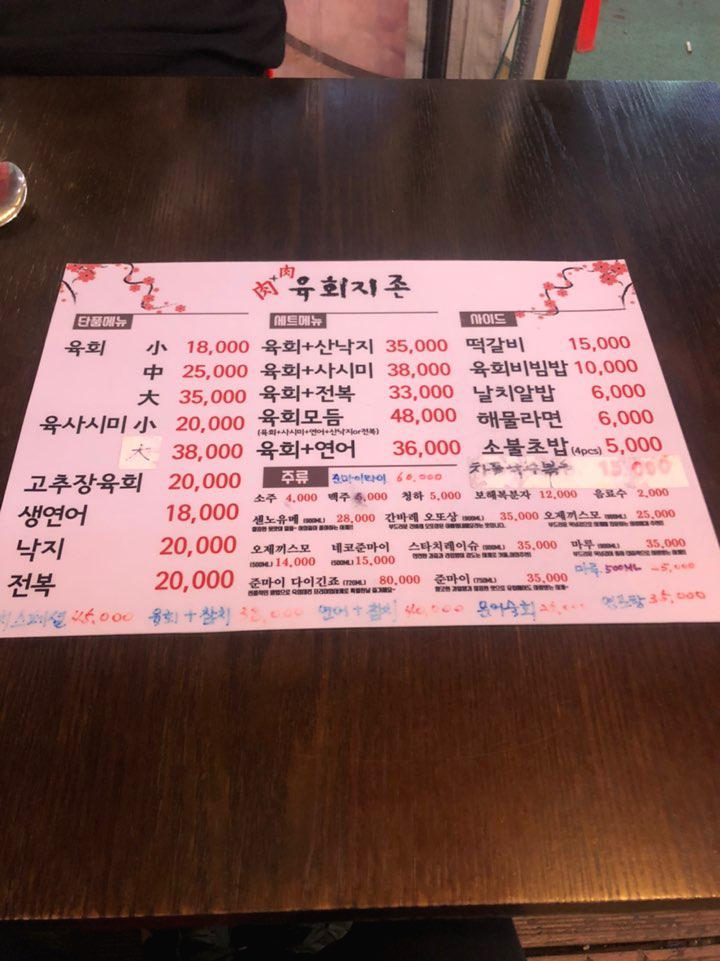 肉×肉 육회지존
단품메뉴
육회 小 18,000
中 25,000
大 35,000
육사시미 小 20,000
大 38,000
고추장육회 20,000
생연어 18,000
낙지 20,000
전복 20,000
세트메뉴
육회+산낙지 35,000
육회+사시미 38,000
육회+전복 33,000
육회모듬 48,000
(육회+사시미+연어+산낙지or전복)
육회+연어 36,000
사이드
떡갈비 15,000
육회비빔밥 10,000
날치알밥 6,000
해물라면 6,000
소불초밥 (4pcs) 5,000
15,000
주류 60,000
소주 4,000 맥주 5,000 청하 5,000 보해복분자 12,000 음료수 2,000
센노유메 (900ML) 28,000 간바레 오또상 (900ML) 35,000 오제끼스모 (900ML) 25,000
오제끼스모 (500ML) 14,000 네코준마이 (500ML) 15,000 스타치레이슈 (900ML) 35,000 마루 (900ML) 35,000
마루 500ML
준마이 다이긴죠 (720ML) 80,000 준마이 (750ML) 35,000
스페셜 45,000 육회+참치 38,000 연어+참치 40,000 문어숙회 연포탕 35,000